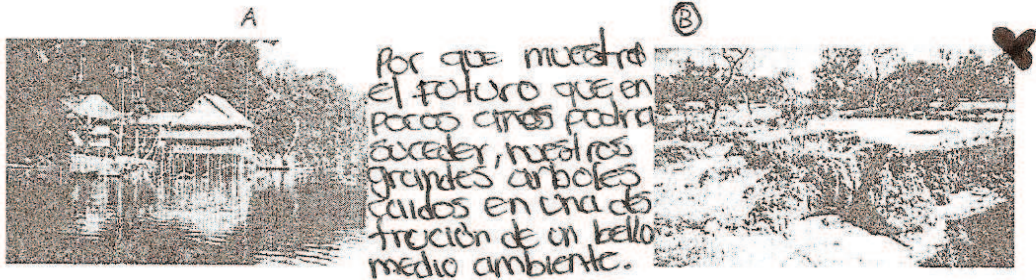 A
Por que muestra
el Futuro que en
pocos años podra
suceder, nuestros
grandes arboles
caidos en una des
trucion de un bello
medio ambiente.
B